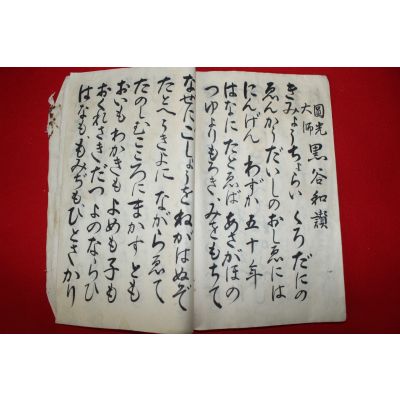 圓光大師 黒谷和讃
きみょうちょらい くろだにの
ゑんかうだいしのおしゑには
にんげん わずか 五十年
はなに たとゑば あさがほの
つゆよりもろきみをもちて
なぜにこしょうを ねがはぬぞ
たとへうきよに ながらゑて
たのしむこころに まかすとも
おいも わかきも よめも子も
おくれさきだつ よのならひ
はなも もみぢも ひとさかり